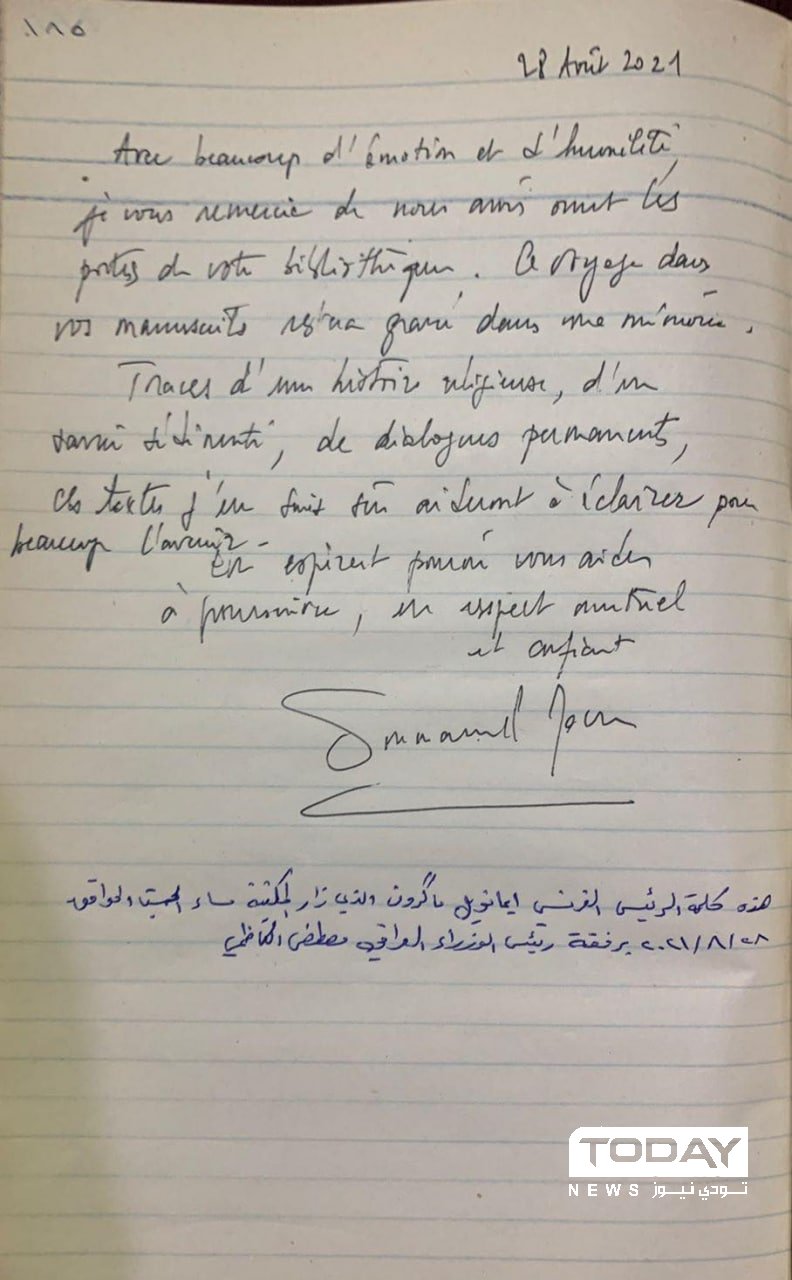 ١٨٥
28 Août 2021
Avec beaucoup d'émotion et d'humilité,
je vous remercie de nous avoir ouvert les
portes de votre bibliothèque. Ce voyage dans
vos manuscrits restera gravé dans ma mémoire.
Traces d'une histoire religieuse, d'un
savoir sédimenté, de dialogues permanents,
ces textes j'en suis sûr aideront à éclairer pour
beaucoup l'avenir.
En espérant pouvoir vous aider
à poursuivre, en respect mutuel
et confiant
Emmanuel Macron
هذه كلمة الرئيس الفرنسي ايمانويل ماكرون والذي زار المكتبة مساء السبت الموافق
٢٠٢١/٨/٢٨ برفقة رئيس الوزراء العراقي مصطفى الكاظمي
TODAY
NEWS تودي نيوز